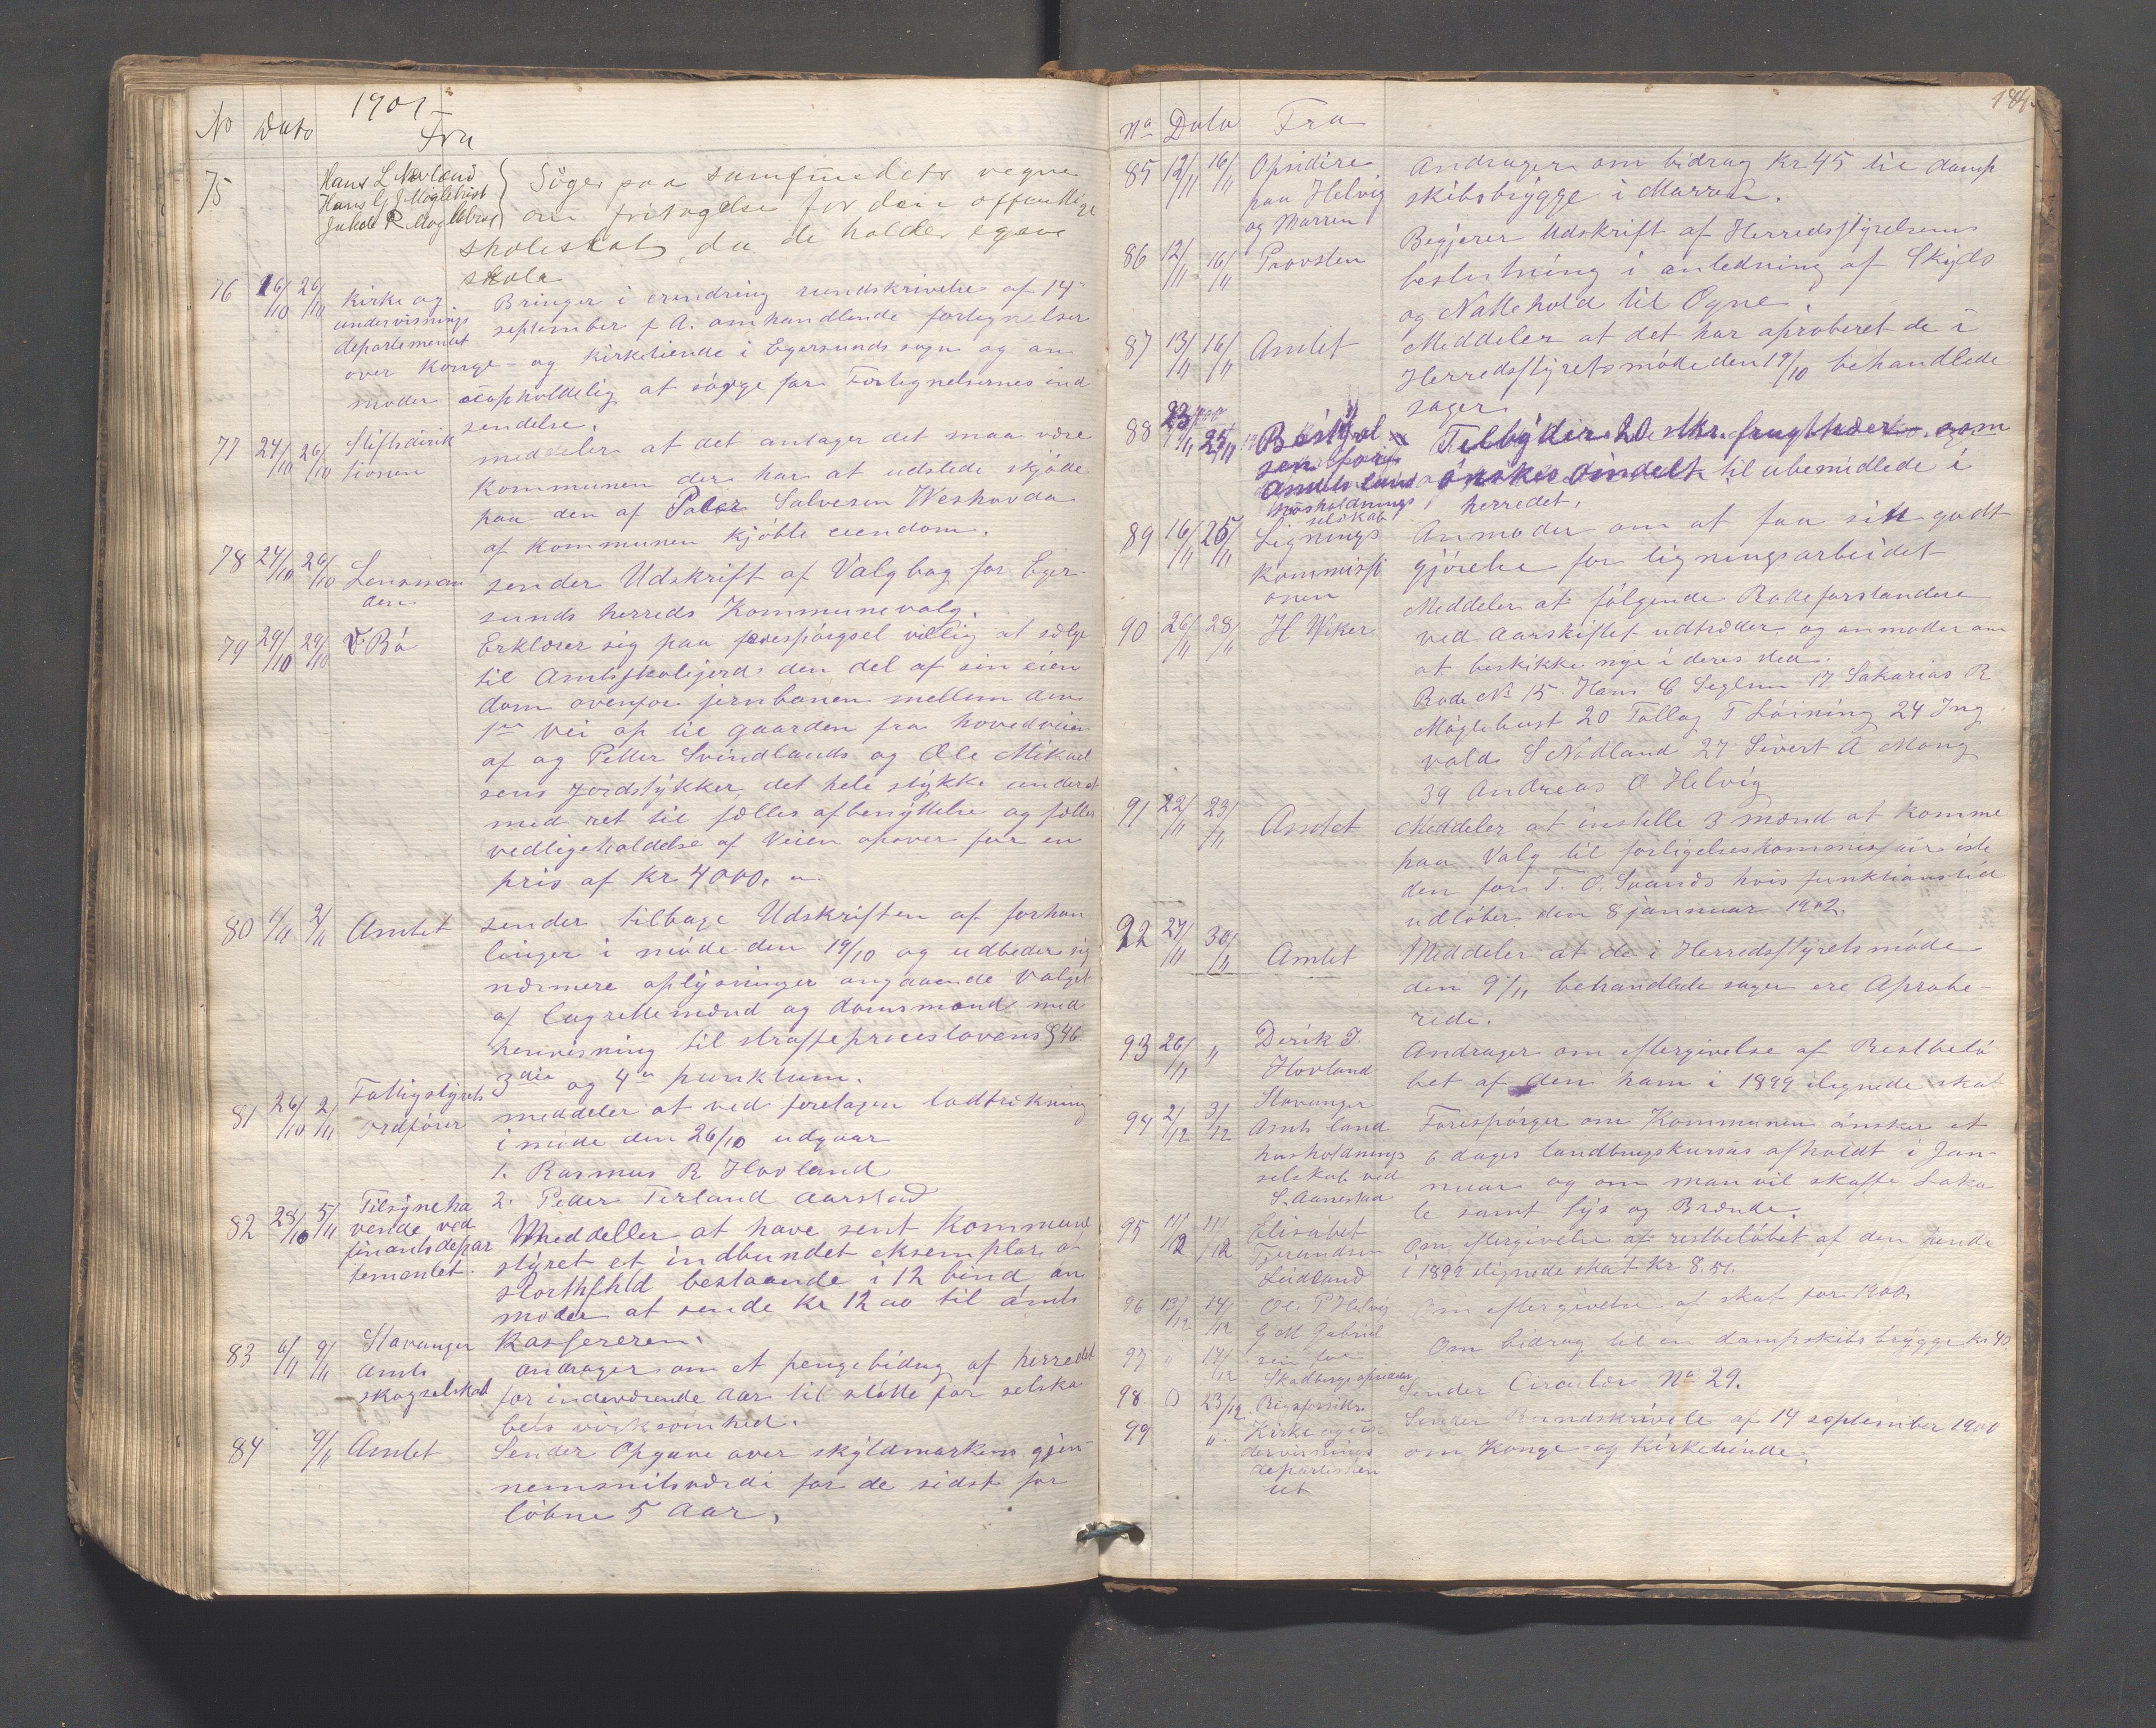 1901
No Dato Fra
75 Hans L Navland
Hans G J Møglebust
Jakob R Møglebust
Søger paa samfundets vegne
om fritagelse for den offentlige
skoleskat, da de holder egen
skole
76 16/10 26/10 Kirke og
undervisnings
departementet
Bringer i erindring rundskrivelse af 14de
september f A. omhandlende fortegnelser
over Konge- og Kirketiende i Egersunds sogn og an
moder uopholdelig at sørge for Fortegnelsernes ind
sendelse.
77 24/10 26/10 Stiftsdirek
tionen
meddeler at det antager det maa være
Kommunen der har at udstede skjøde
paa den af Peder Salvesen Veshovda
af Kommunen kjøbte eiendom.
78 24/10 26/10 Lensman
den
sender Udskrift af Valgbog for Eger-
sunds herreds Kommunevalg.
79 29/10 29/10 F Bø
Erklærer sig paa forespørgsel villig at sælge
til Amtsskolejord den del af sin eien
dom ovenfor jernbanen mellem den
1ste Vei op til gaarden fra hovedveien
af og Petter Svindlands og Ole Mikael
sens jordstykker, det hele stykke under et
med ret til fælles afbenyttelse og fælles
vedligeholdelse af Veien opover for en
pris af Kr 4000.
80 1/11 2/11 Amtet
sender tilbage Udskriften af forhan
linger i møde den 19/10 og udbeder sig
nærmere oplysninger angaaende Valget
af lagrettemænd og domsmænd med
henvisning til straffeproceslovens § 46
3die og 4de punktum.
81 26/10 2/11 Fattigstyrets
ordfører
meddeler at ved foretagen lodtrækning
i møde den 26/10 udgaar
1. Rasmus R Hovland
2. Peder Terland Aarstad
82 28/10 5/11 Tilsynsha
vende ved
finantsdepar
tementet
Meddeller at have sent Kommune
styret et indbundet eksemplar af
storthfhld bestaaende i 12 bind, an
moder at sende Kr 12 00 til amts
Kassereren.
83 6/11 9/11 Stavanger
Amts
skogselskab
andrager om et pengebidrag af herredet
for indeværende Aar til støtte for selska
bets virksomhed.
84 9/11 Amtet
Sender Opgave over skyldmarkens gjen-
nemsnitsværdi for de sidst for
løbne 5 Aar.
184.
No Dato Fra
85 12/11 16/11 Opsidere
paa Helvig
og Marren
Andrager om bidrag Kr 45 til damp
skibsbrygge i Marren.
86 12/11 16/11 Provsten
Begjerer Udskrift af Herredsstyrelsens
beslutning i anledning af Skyds
og Nattehold til Ogne.
87 13/11 16/11 Amtet
Meddeler at det har aproberet de i
Herredsstyrets møde den 19/10 behandlede
sager.
88 23/11 25/11
Tilbyder 20 stkr. frugttrær som
ønskes indelt til ubemidlede i
herredet.
husholdnings
selskab
89 16/11 25/11 Lignings
Kommissi
onen
Anmoder om at faa sin godt
gjørelse for ligningsarbeidet
90 26/11 28/11 H Wiker
Meddeler at følgende Rodeforstandere
ved Aarskiftet udtræder og anmoder om
at beskikke nye i deres sted.
Rode No 15 Hans C Seglem 17 Sakarias R
Møglebust 20 Tollag T Løining 24 Ing
vald S Nodland 27 Sivert A Mong
39 Andreas O Helvig
91 22/11 23/11 Amtet
Meddeler at instille 3 mænd at komme
paa Valg til forligelseskommissær iste
den for T. O. Svands hvis funktionstid
udløber den 8 januar 1902.
92 27/11 30/11 Amtet
Meddeler at de i Herredsstyrets møde
den 9/11 behandlede sager ere Aprobe-
rede.
93 26/11 " Derik T.
Hovland
Andrager om eftergivelse af Restbelø
bet af den ham i 1899 ilignede skat
94 2/12 3/12 Stavanger
Amts land
husholdnings
selskab ved
S. Aanestad
Forespørger om Kommunen ønsker et
6 dages landbrugskursus afholdt i Jan-
nuar og om man vil skaffe Loka
le samt lys og Brænde.
95 11/12 11/12 Elisabet
Tjerandsen
Leidland
Om eftergivelse af restbeløbet af den hende
i 1899 ilignede skat Kr 8.51.
96 13/12 14/12 Ole P Helvig
Om eftergivelse af skat for 1900.
97 " 17/12 G M Gabriel
sen for
Skadberg opsidder
Om bidrag til en dampskibsbrygge Kr 40
98 0 23/12 Rigsforsikr.
Sender Circulær No 29.
99 " Kirke og un
dervisnings
departemen
tet
Sender Rundskrivele af 14 september 1900
om Konge- og Kirketiende.